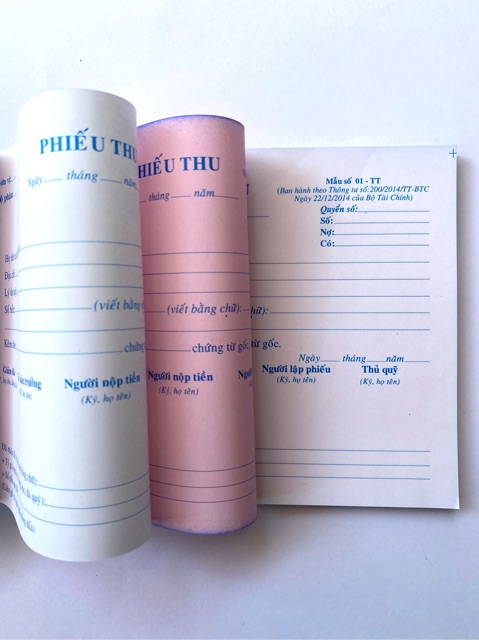 PHIẾU THU
Ngày____ tháng____ năm
(viết bằng
chứng
Người nộp tiền
(Ký, họ tên)
HIẾU THU
tháng____ năm____
(viết bằng chữ):
chứng từ gốc
Người nộp tiền
(Ký, họ tên)
Mẫu số 01 - TT
(Ban hành theo Thông tư số:200/2014/TT-BTC
Ngày 22/12/2014 của Bộ Tài Chính)
Quyển số:
Số:
Nợ:
Có:
chữ):
từ gốc.
Ngày____ tháng____năm____
Người lập phiếu
Thủ quỹ
(Ký, họ tên)
(Ký, họ tên)